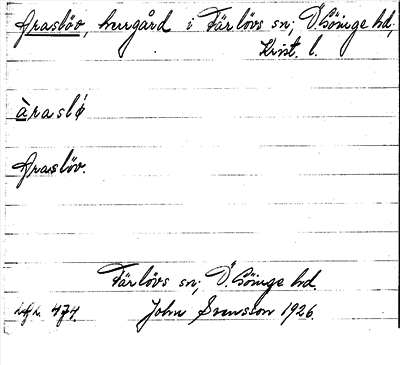 Araslöv, herrgård i Färlövs sn; Ö. Göinge hd;
Krist. l.
àraslö
Araslöv.
Färlövs sn; Ö. Göinge hd.
474. John Svensson 1926.